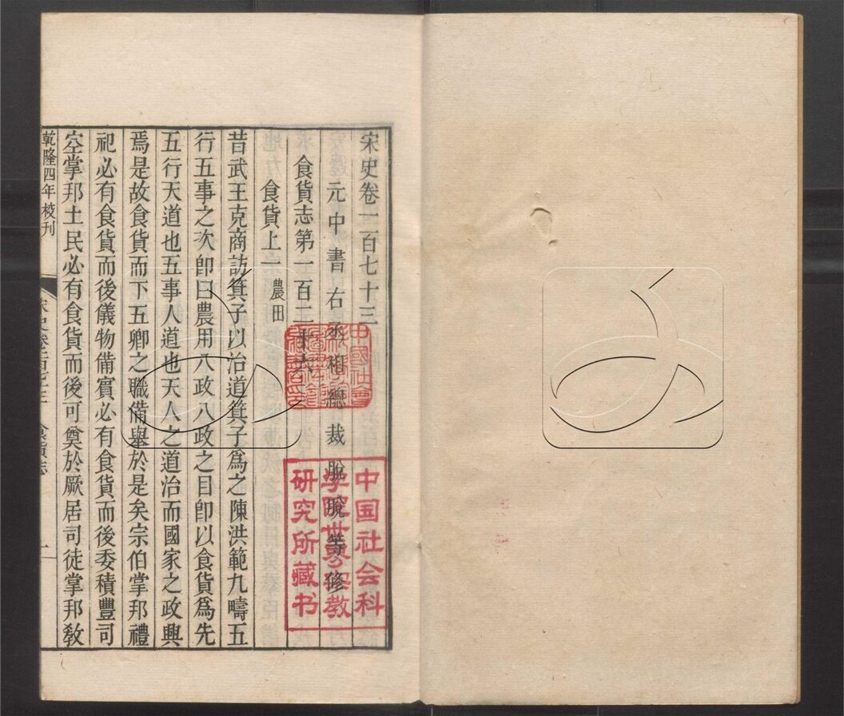 宋史卷一百七十三
元中書右丞相總裁脫脫等修
食貨志第一百二十六
食貨上一 農田
昔武王克商訪箕子以治道箕子爲之陳洪範九疇五
行五事之次卽曰農用八政八政之目卽以食貨爲先
五行天道也五事人道也天人之道治而國家之政興
焉是故食貨而下五卿之職備舉於是矣宗伯掌邦禮
祀必有食貨而後儀物備賓必有食貨而後委積豐司
空掌邦土民必有食貨而後可奠於厥居司徒掌邦敎
乾隆四年校刊
宋史卷一百七十三 食貨志 一
中国社会科
学院世界宗教
研究所藏书